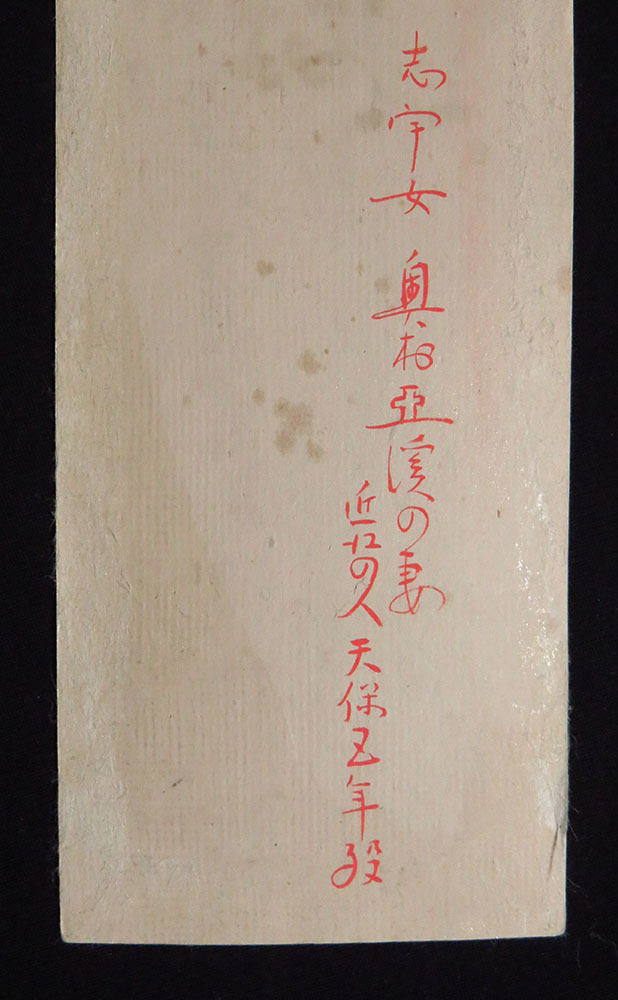 志宇女 奥村亜渓の妻
近江の人 天保五年歿